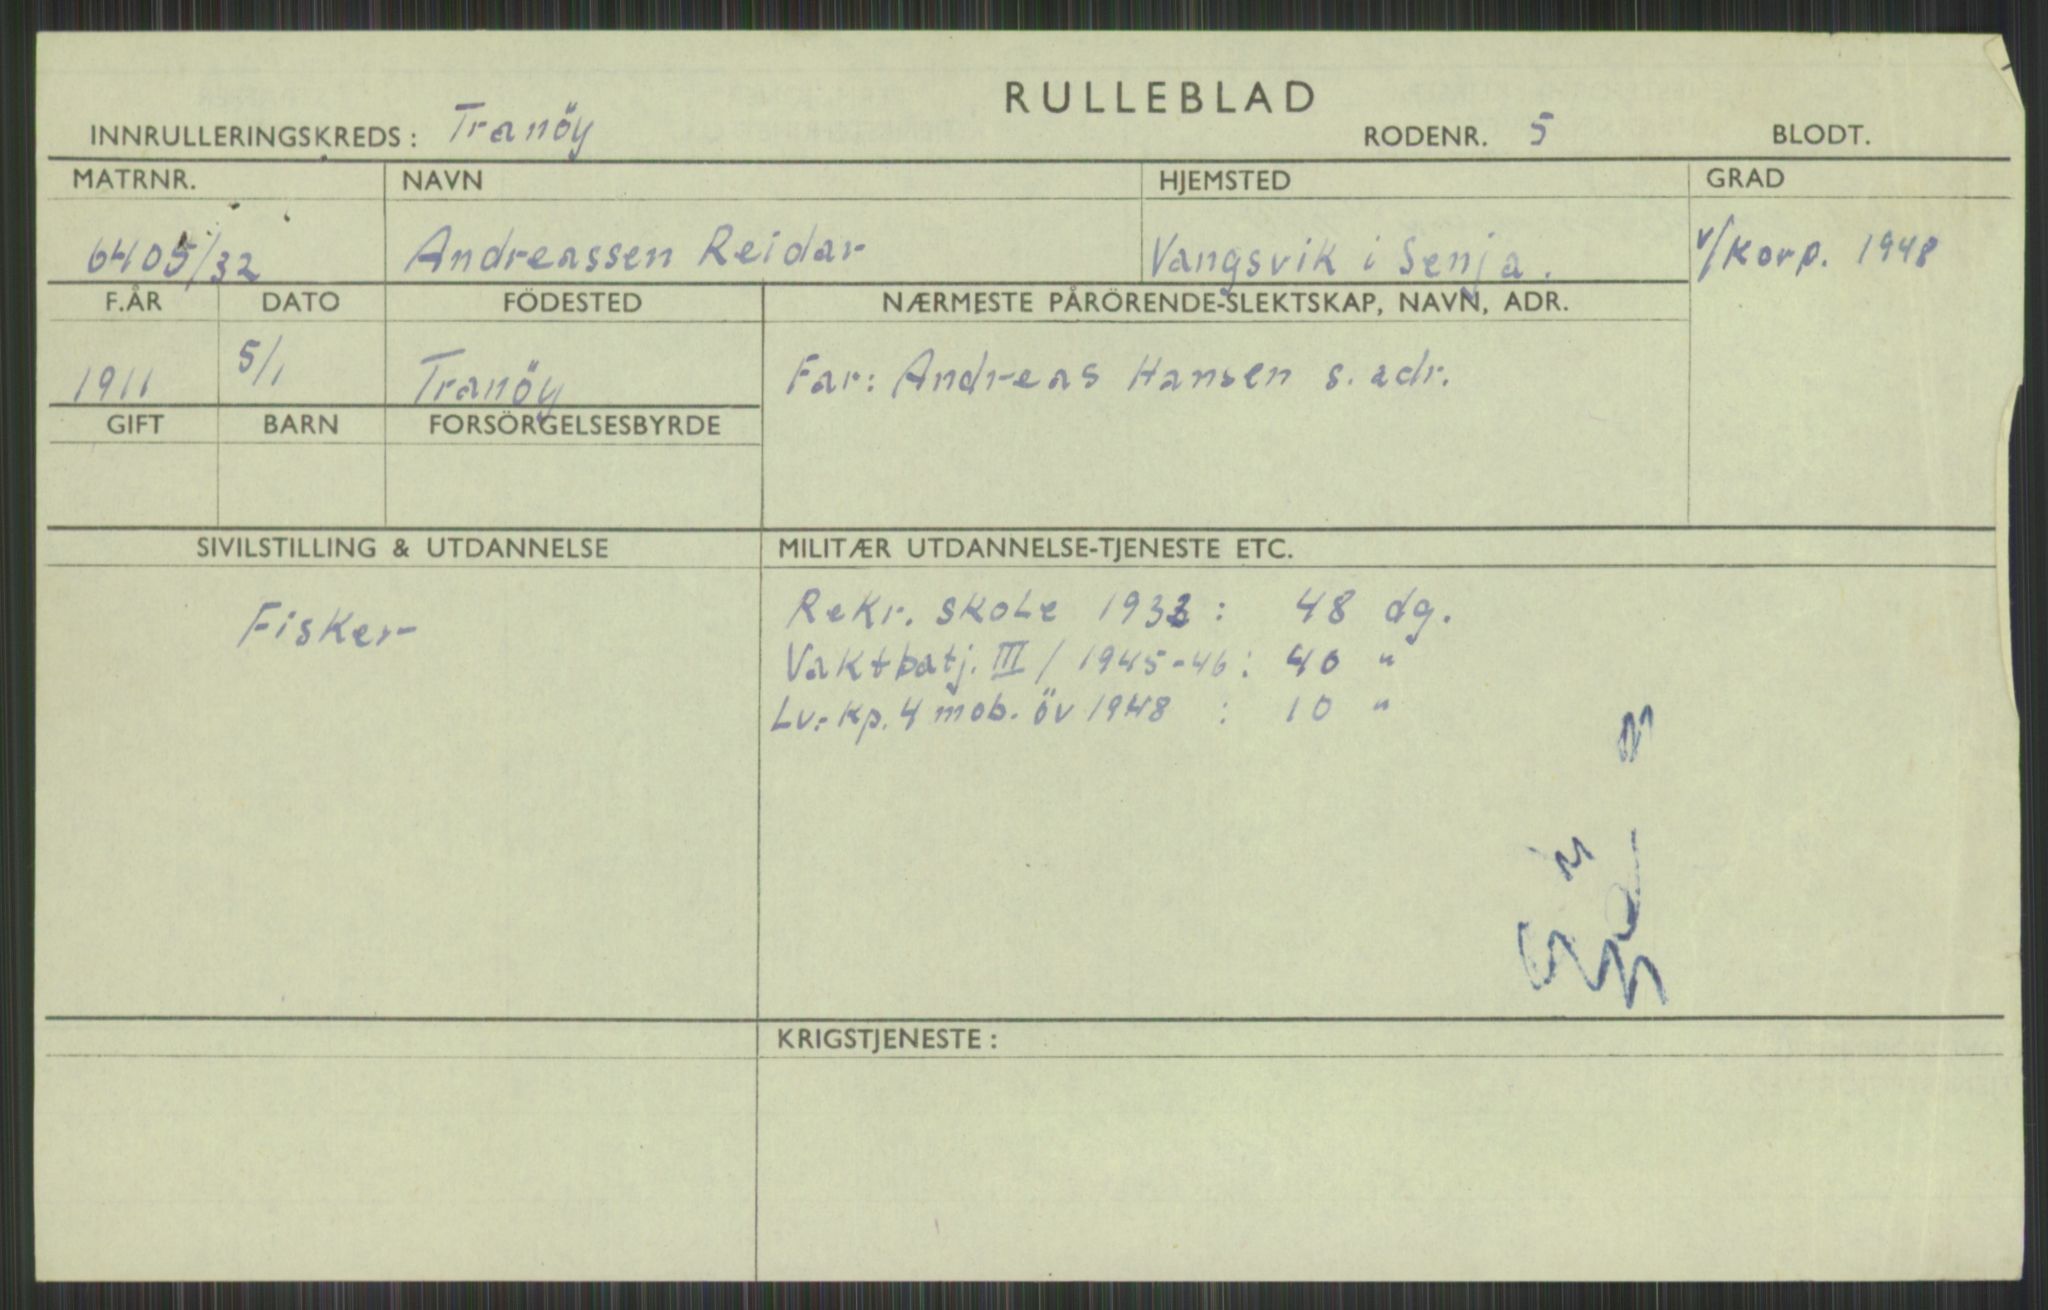 RULLEBLAD
INNRULLERINGSKREDS: Tranöy RODENR. 5 BLODT.
MATRNR. NAVN HJEMSTED GRAD
6405/32 Andreassen Reidar Vangsvik i Senja. v/Korp. 1948
F.ÅR DATO FÖDESTED NÆRMESTE PÅRÖRENDE-SLEKTSKAP, NAVN, ADR.
1911 5/1 Tranöy Far: Andreas Hansen s. adr.
GIFT BARN FORSÖRGELSESBYRDE
SIVILSTILLING & UTDANNELSE MILITÆR UTDANNELSE-TJENESTE ETC.
Fisker Rekr. skole 1933: 48 dg.
Vaktbatj. III / 1945-46: 40 "
Lv.-Kp. 4 mob. öv 1948 : 10 "
KRIGSTJENESTE: